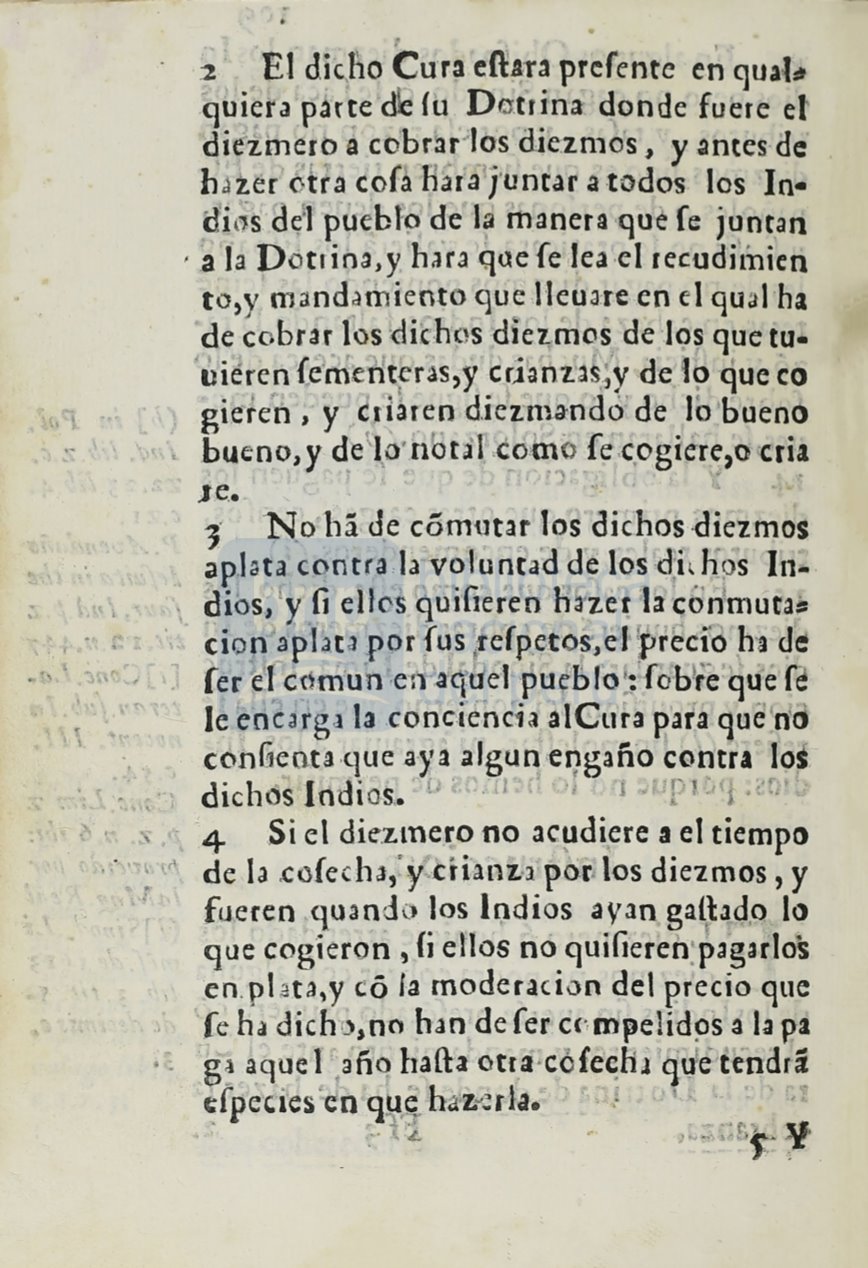 2 El dicho Cura eſtara preſente en qual-
quiera parte de ſu Dotrina donde fuere el
diezmero a cobrar los diezmos, y antes de
hazer otra coſa hara juntar a todos los In-
dios del pueblo de la manera que ſe juntan
a la Dotrina,y hara que ſe lea el recudimien
to,y mandamiento que lleuare en el qual ha
de cobrar los dichos diezmos de los que tu-
uieren ſementeras,y crianzas,y de lo que co
gieren, y criaren diezmando de lo bueno
bueno,y de lo notal como ſe cogiere,o cria
re.
3 No hã de cõmutar los dichos diezmos
aplata contra la voluntad de los dichos In-
dios, y ſi ellos quiſieren hazer la conmuta-
cion aplata por ſus reſpetos,el precio ha de
ſer el comun en aquel pueblo: ſobre que ſe
le encarga la conciencia alCura para que no
conſienta que aya algun engaño contra los
dichos Indios.
4 Si el diezmero no acudiere a el tiempo
de la coſecha, y crianza por los diezmos, y
fueren quando los Indios ayan gaſtado lo
que cogieron, ſi ellos no quiſieren pagarlos
en plata,y cõ la moderacion del precio que
ſe ha dicho,no han de ſer compelidos a la pa
ga aquel año haſta otra coſecha que tendrã
eſpecies en que hazerla.
5 Y